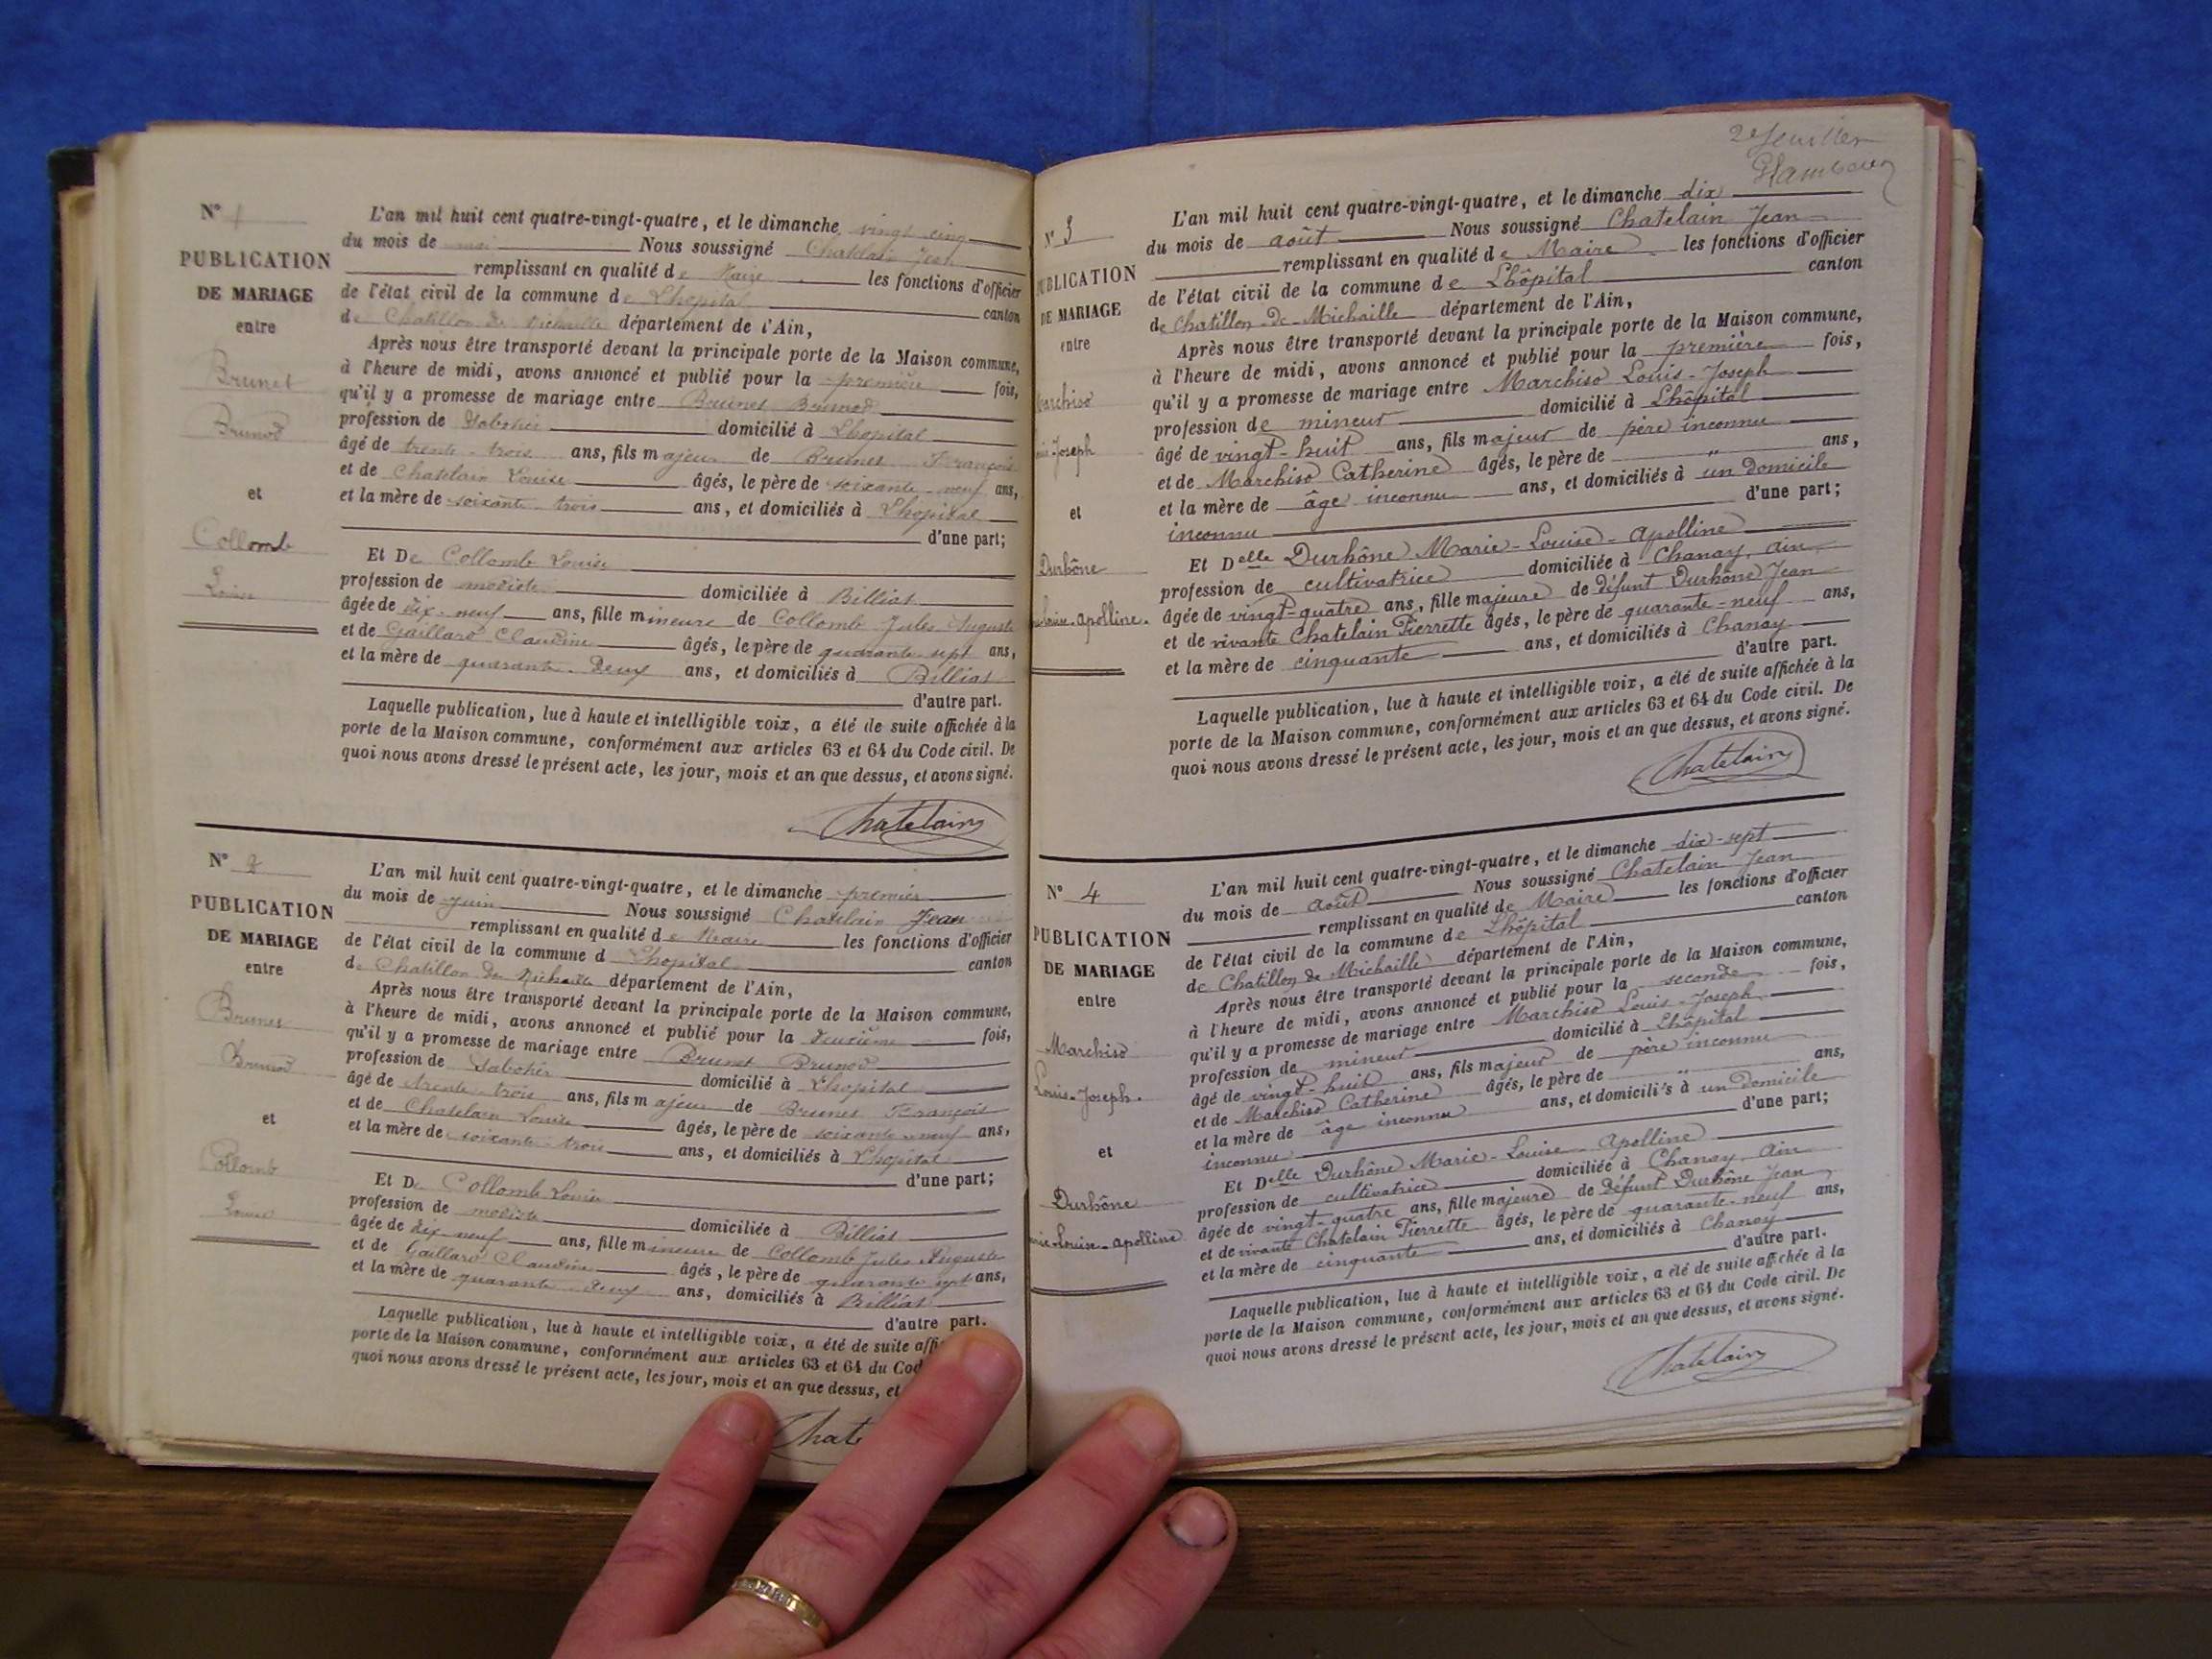 N° 1
PUBLICATION
DE MARIAGE
entre
Brunet
Brunod
et
Collomb
Louise
L'an mil huit cent quatre-vingt-quatre, et le dimanche vingt cinq
du mois de mai Nous soussigné Chatelain Jean
remplissant en qualité de Maire les fonctions d'officier
de l'état civil de la commune de Lhopital canton
de Chatillon de Michaille département de l'Ain,
Après nous être transporté devant la principale porte de la Maison commune,
à l'heure de midi, avons annoncé et publié pour la première fois,
qu'il y a promesse de mariage entre Brunet Brunod
profession de Sabotier domicilié à Lhopital
âgé de trente-trois ans, fils majeur de Brunet François
et de Chatelain Louise âgés, le père de soixante-neuf ans,
et la mère de soixante-trois ans, et domiciliés à Lhopital
d'une part;
Et De Collomb Louise
profession de modiste domiciliée à Billiat
âgée de dix-neuf ans, fille mineure de Collomb Jules Auguste
et de Gaillard Claudine âgés, le père de quarante-sept ans,
et la mère de quarante-deux ans, et domiciliés à Billiat
d'autre part.
Laquelle publication, lue à haute et intelligible voix, a été de suite affichée à la
porte de la Maison commune, conformément aux articles 63 et 64 du Code civil. De
quoi nous avons dressé le présent acte, les jour, mois et an que dessus, et avons signé.
Chatelain
N° 2
PUBLICATION
DE MARIAGE
entre
Brunet
Brunod
et
Collomb
Louise
L'an mil huit cent quatre-vingt-quatre, et le dimanche premier
du mois de juin Nous soussigné Chatelain Jean
remplissant en qualité de Maire les fonctions d'officier
de l'état civil de la commune d Lhopital canton
de Chatillon de Michaille département de l'Ain,
Après nous être transporté devant la principale porte de la Maison commune,
à l'heure de midi, avons annoncé et publié pour la deuxième fois,
qu'il y a promesse de mariage entre Brunet Brunod
profession de Sabotier domicilié à Lhopital
âgé de trente-trois ans, fils majeur de Brunet François
et de Chatelain Louise âgés, le père de soixante-neuf ans,
et la mère de soixante-trois ans, et domiciliés à Lhopital
d'une part;
Et De Collomb Louise
profession de modiste domiciliée à Billiat
âgée de dix-neuf ans, fille mineure de Collomb Jules Auguste
et de Gaillard Claudine âgés, le père de quarante sept ans,
et la mère de quarante-deux ans, domiciliés à Billiat
d'autre part.
Laquelle publication, lue à haute et intelligible voix, a été de suite affi
porte de la Maison commune, conformément aux articles 63 et 64 du Cod
quoi nous avons dressé le présent acte, les jour, mois et an que dessus, et
Chate
2e feuillet
N° 3
PUBLICATION
DE MARIAGE
entre
Marchiso
Joseph
et
Durhône
Louise-Apolline.
L'an mil huit cent quatre-vingt-quatre, et le dimanche dix
du mois de août Nous soussigné Chatelain Jean
remplissant en qualité de Maire les fonctions d'officier
de l'état civil de la commune de Lhôpital canton
de Chatillon-de-Michaille département de l'Ain,
Après nous être transporté devant la principale porte de la Maison commune,
à l'heure de midi, avons annoncé et publié pour la première fois,
qu'il y a promesse de mariage entre Marchiso Louis-Joseph
profession de mineur domicilié à Lhôpital
âgé de vingt-huit ans, fils majeur de père inconnu
et de Marchiso Catherine âgés, le père de " ans,
et la mère de âge inconnu ans, et domiciliés à un domicile
inconnu d'une part;
Et Delle Durhône Marie-Louise-Apolline
profession de cultivatrice domiciliée à Chanay, Ain
âgée de vingt-quatre ans, fille majeure de défunt Durhône Jean
et de vivante Chatelain Pierrette âgés, le père de quarante-neuf ans,
et la mère de cinquante ans, et domiciliés à Chanay
d'autre part.
Laquelle publication, lue à haute et intelligible voix, a été de suite affichée à la
porte de la Maison commune, conformément aux articles 63 et 64 du Code civil. De
quoi nous avons dressé le présent acte, les jour, mois et an que dessus, et avons signé.
Chatelain
N° 4
PUBLICATION
DE MARIAGE
entre
Marchiso
Louis-Joseph.
et
Durhône
Marie-Louise-Apolline
L'an mil huit cent quatre-vingt-quatre, et le dimanche dix-sept
du mois de août Nous soussigné Chatelain Jean
remplissant en qualité de Maire les fonctions d'officier
de l'état civil de la commune de Lhôpital canton
de Chatillon de Michaille département de l'Ain,
Après nous être transporté devant la principale porte de la Maison commune,
à l'heure de midi, avons annoncé et publié pour la seconde fois,
qu'il y a promesse de mariage entre Marchiso Louis-Joseph
profession de mineur domicilié à Lhôpital
âgé de vingt-huit ans, fils majeur de père inconnu
et de Marchiso Catherine âgés, le père de " ans,
et la mère de âge inconnu ans, et domiciliés à un domicile
inconnu d'une part;
Et Delle Durhône Marie-Louise Apolline
profession de cultivatrice domiciliée à Chanay Ain
âgée de vingt-quatre ans, fille majeure de défunt Durhône Jean
et de vivante Chatelain Pierrette âgés, le père de quarante-neuf ans,
et la mère de cinquante ans, et domiciliés à Chanay
d'autre part.
Laquelle publication, lue à haute et intelligible voix, a été de suite affichée à la
porte de la Maison commune, conformément aux articles 63 et 64 du Code civil. De
quoi nous avons dressé le présent acte, les jour, mois et an que dessus, et avons signé.
Chatelain